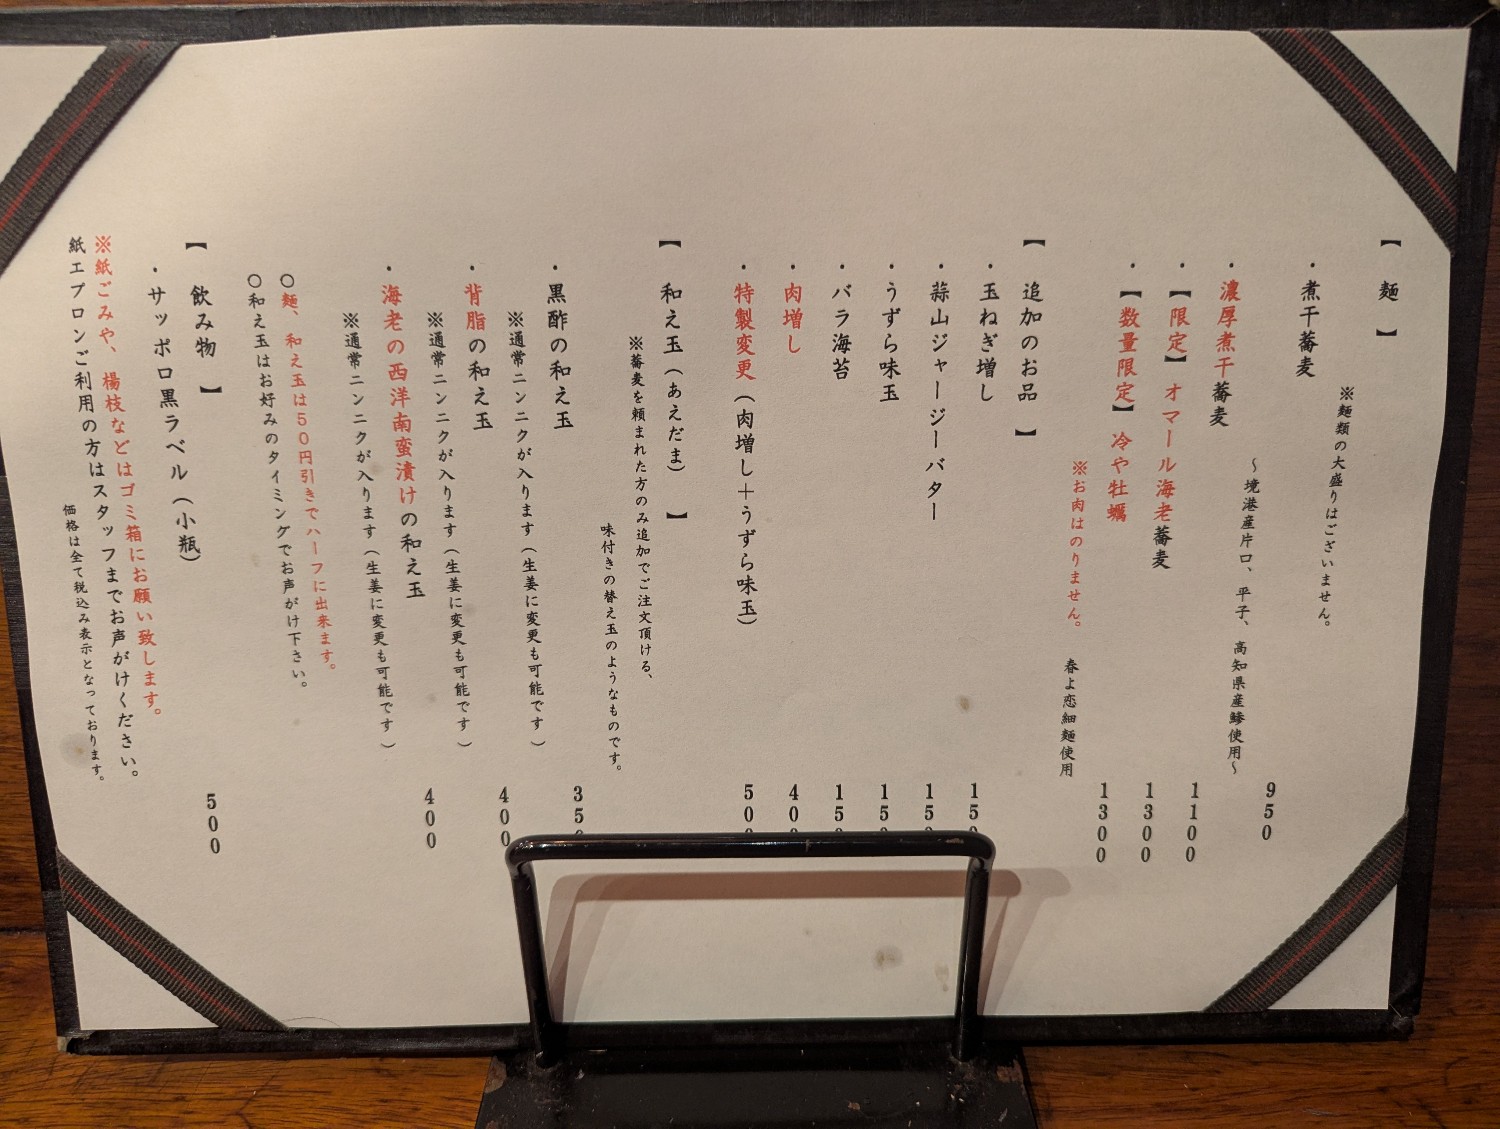 【 麺 】
※麺類の大盛りはございません。
・煮干蕎麦 950
～境港産片口、平子、高知県産鯵使用～
・濃厚煮干蕎麦 1100
・【限定】オマール海老蕎麦 1300
・【数量限定】冷や牡蠣 1300
※お肉はのりません。 春よ恋細麺使用
【 追加のお品 】
・玉ねぎ増し 150
・蒜山ジャージーバター 150
・うずら味玉 150
・バラ海苔 150
・肉増し 400
・特製変更（肉増し＋うずら味玉） 500
【 和え玉（あえだま） 】
※蕎麦を頼まれた方のみ追加でご注文頂ける、
味付きの替え玉のようなものです。
・黒酢の和え玉 350
※通常ニンニクが入ります（生姜に変更も可能です）
・背脂の和え玉 400
※通常ニンニクが入ります（生姜に変更も可能です）
・海老の西洋南蛮漬けの和え玉 400
※通常ニンニクが入ります（生姜に変更も可能です）
○麺、和え玉は５０円引きでハーフに出来ます。
○和え玉はお好みのタイミングでお声がけ下さい。
【 飲み物 】
・サッポロ黒ラベル（小瓶） 500
※紙ごみや、楊枝などはゴミ箱にお願い致します。
紙エプロンご利用の方はスタッフまでお声がけください。
価格は全て税込み表示となっております。